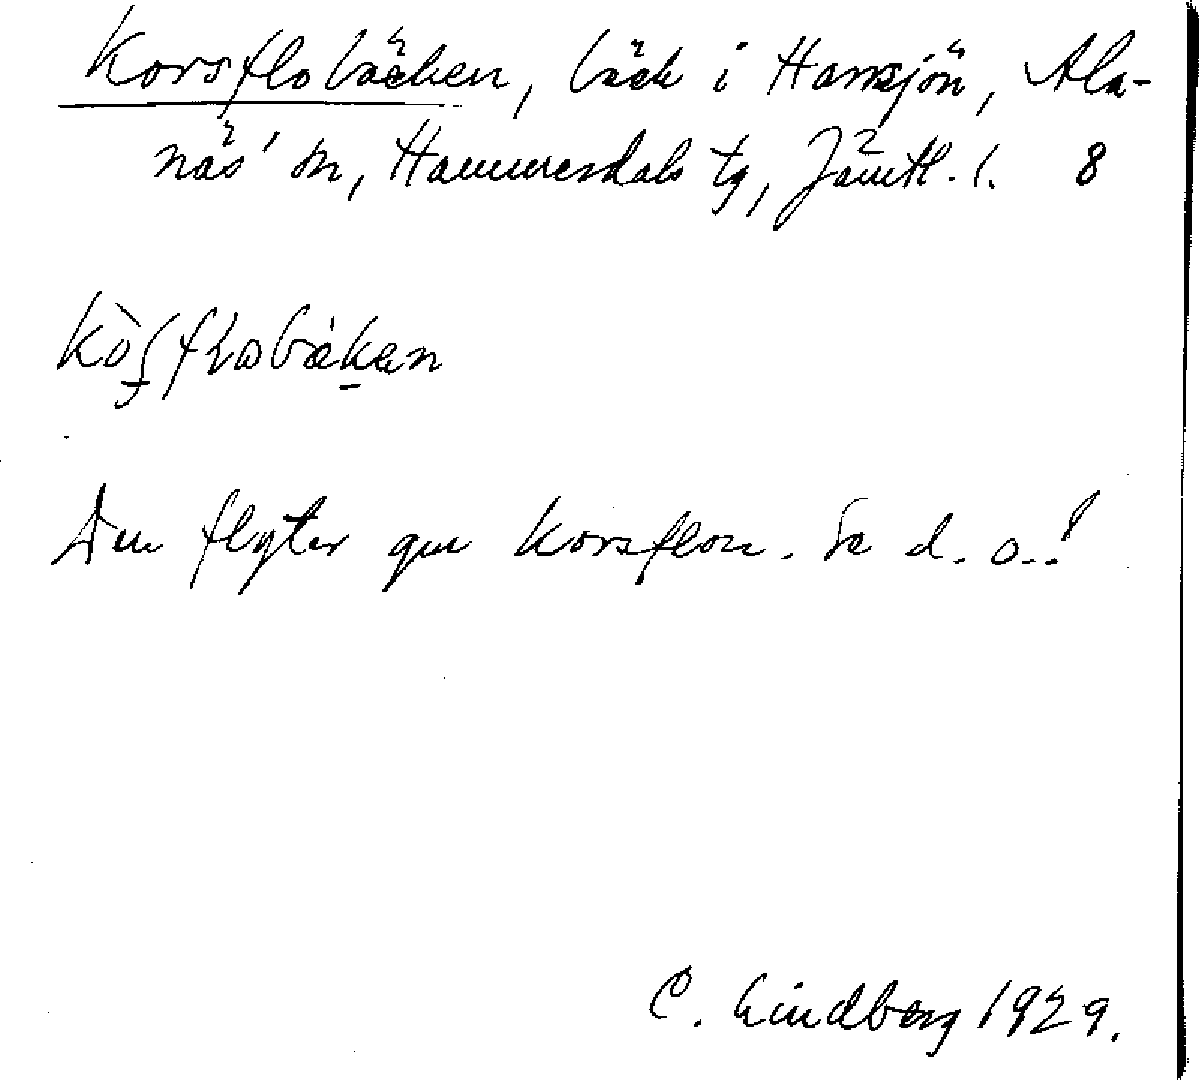 Korsflobäcken, bäck i Hansjön, Ala-
näs' sn, Hammerdals tg, Jämtl. l. 8
Den flyter gm Korsflon. Se d. o.!
C. Lindberg 1929.